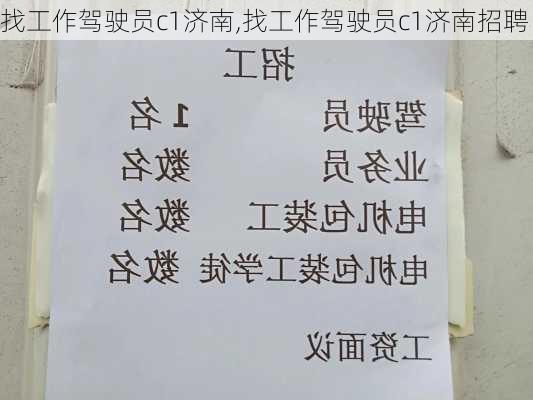 找工作驾驶员c1济南,找工作驾驶员c1济南招聘
招工
驾驶员 1名
业务员 数名
电机包装工 数名
电机包装工学徒 数名
工资面议